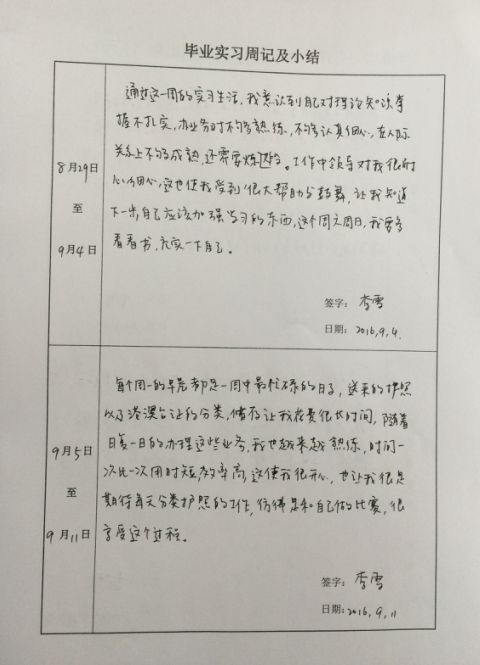 毕业实习周记及小结
8月29日
至
9月4日
通过这一周的实习生活,我意识到自己对理论知识掌
握不扎实,办业务时不够熟练,不够认真细心,在人际
关系上不够成熟,还需要炼达的。工作中领导对我很耐
心细心,这也使我受到很大帮助与鼓舞,让我知道
下一步自己应该加强学习的东西,这个周六周日,我要多
看看书,充实一下自己。
签字: 李雪
日期: 2016.9.4.
9月5日
至
9月11日
每个周一的早晨都是一周中最忙碌的日子,送来的护照
以及港澳台证的分类,储存让我花费很长时间,随着
日复一日的办理这些业务,我也越来越熟练,时间一
次比一次用时短,效率高,这使我很开心,也让我很是
期待每天分类护照的工作,仿佛是和自己做比赛,很
享受这个过程。
签字: 李雪
日期: 2016.9.11